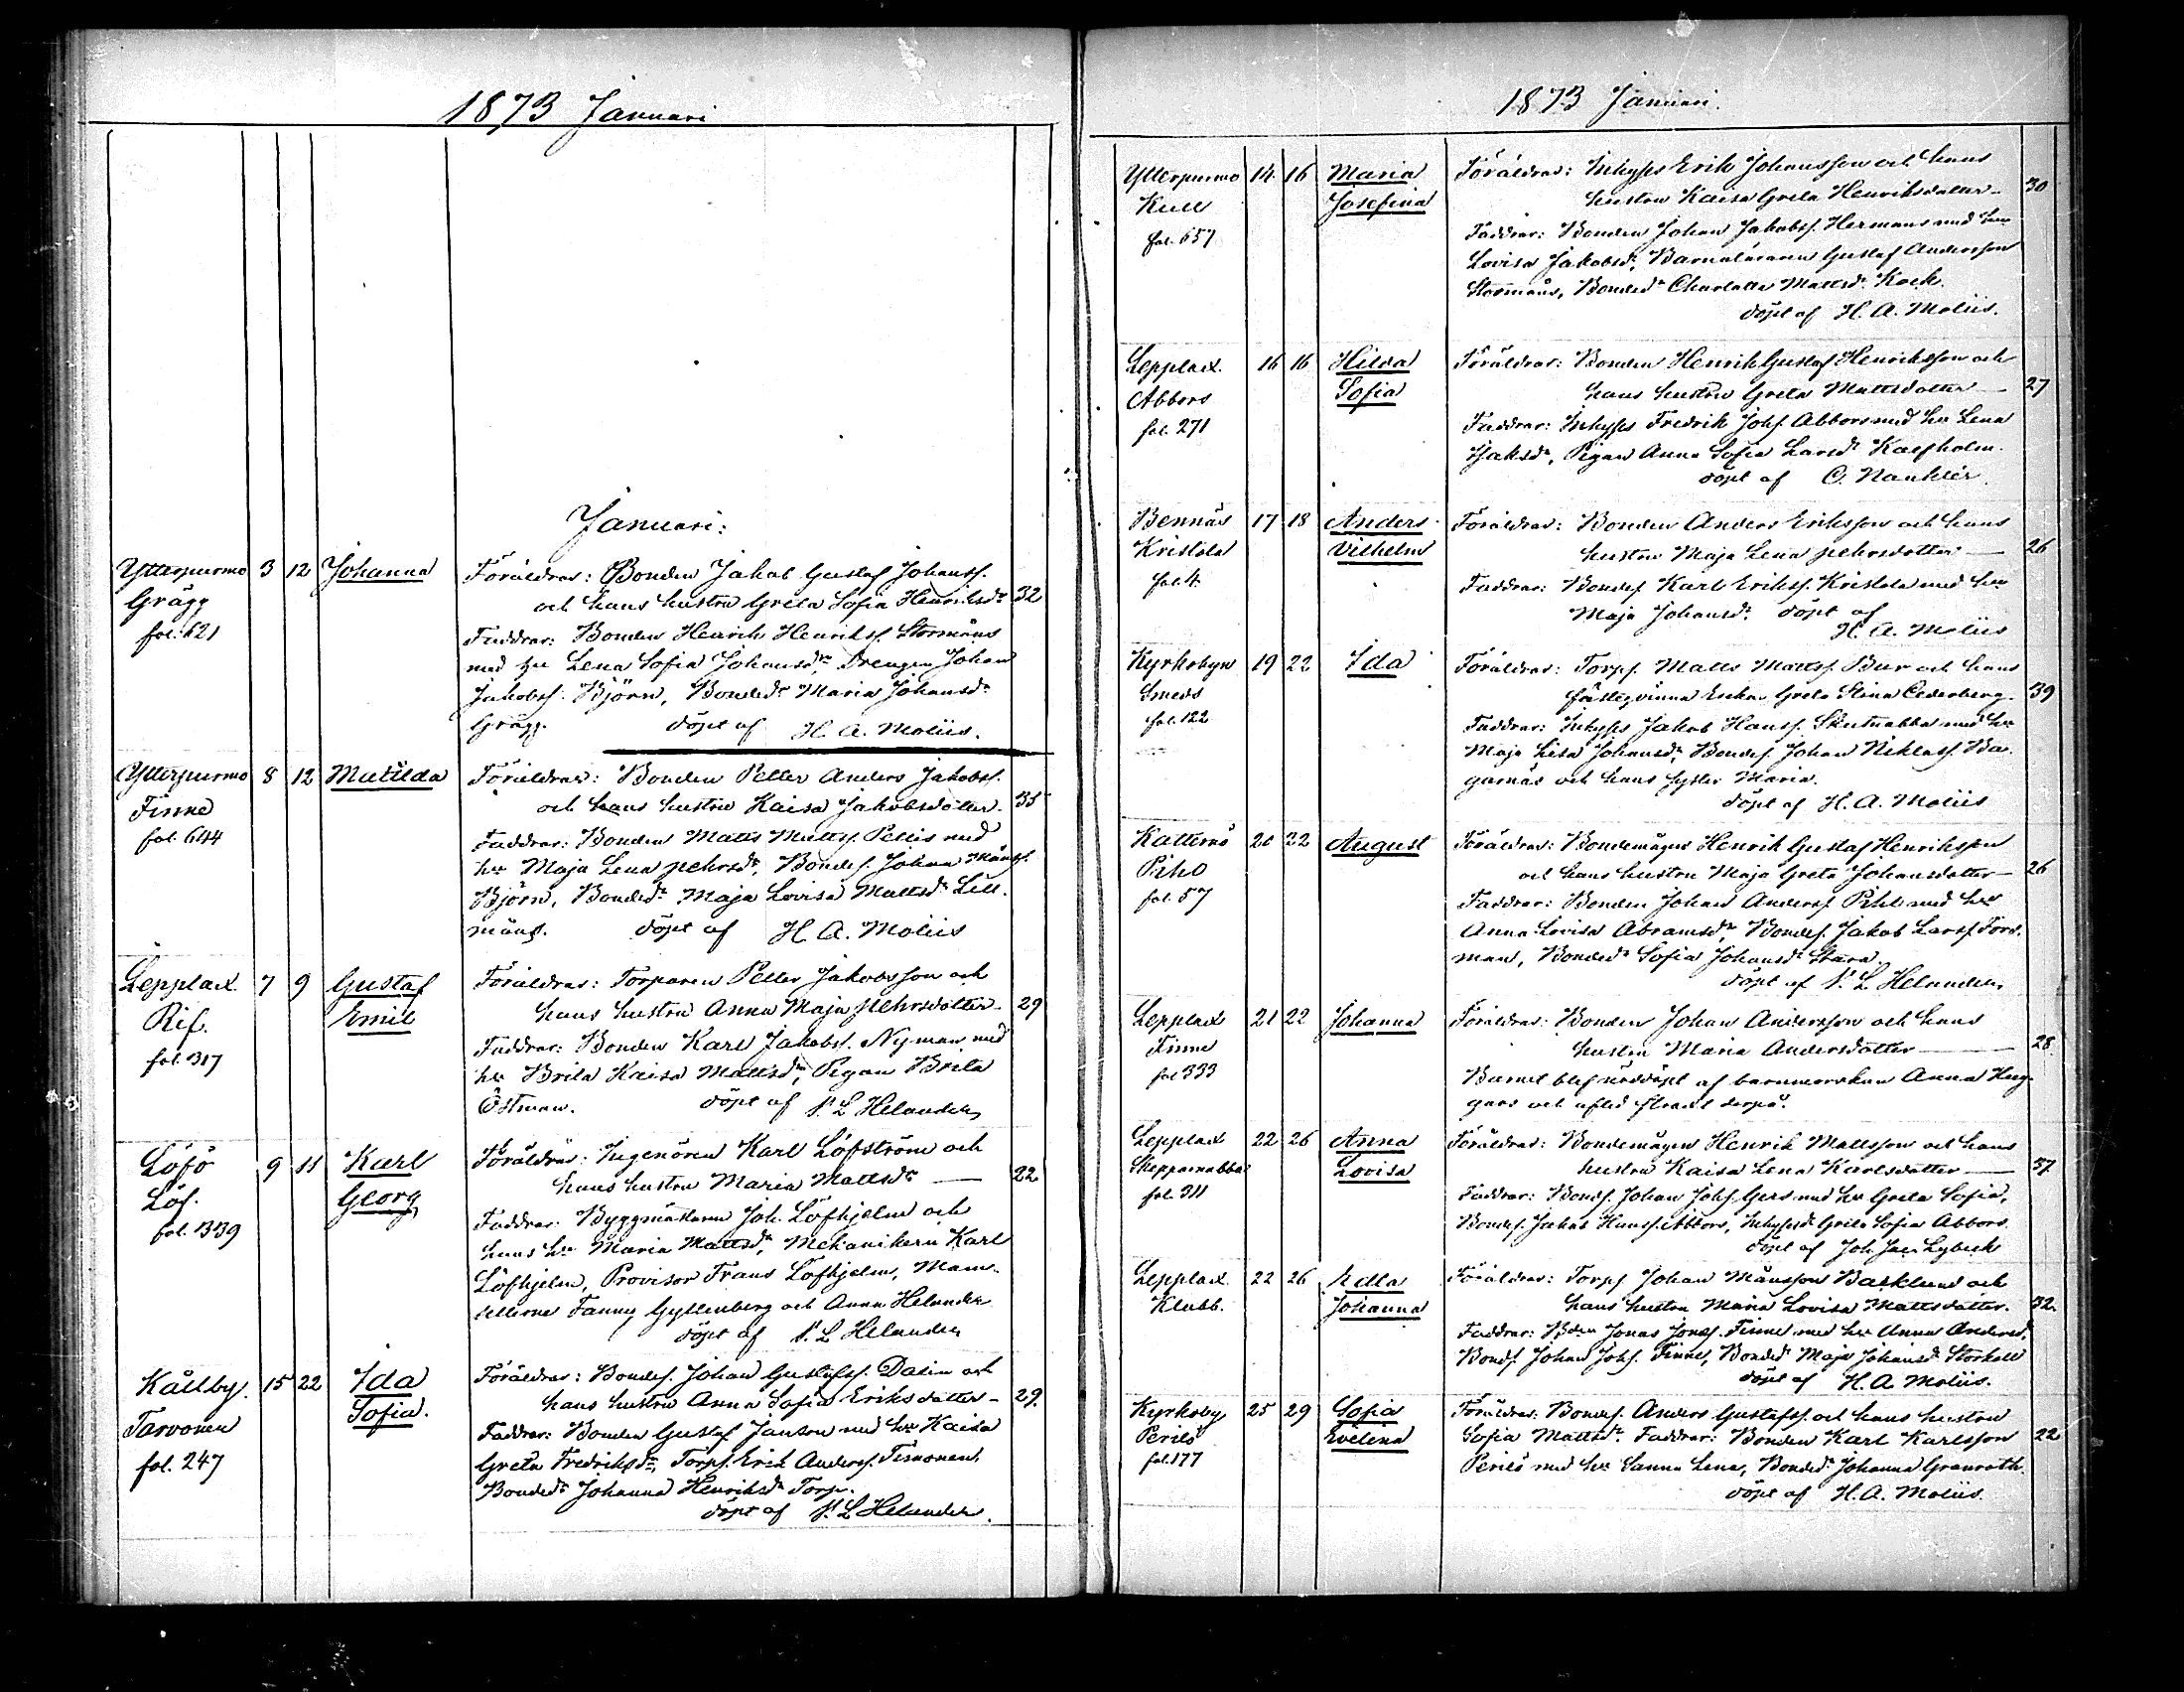 1873 Januari
Januari:
Ytterpurmo 3 12 Johanna Föräldrar: Bonden Jakob Gustaf Johanss.
Grägg och hans hustru Greta Sofia Henriksdr 32
fol. 621 Faddrar: Bonden Henrik Henrikss. Stormåns
med hu Lena Sofia Johansdr, Drengen Johan
Jakobss. Björn, Bondedr Maria Johansdr
Grägg. döpt af H. A. Moliis.
Ytterpurmo 8 12 Matilda Föräldrar: Bonden Petter Anders Jakobss.
Finne och hans hustru Kaisa Jakobsdotter. 35
fol. 644 Faddrar: Bonden Matts Mattss. Pellis med
hu Maja Lena pehrsdr, Bondes. Johan Månss.
Björn, Bondedr Maja Lovisa Mattsdr Lill-
måns. döpt af H. A. Moliis
Lepplax 7 9 Gustaf Föräldrar: Torparen Petter Jakobsson och
Rif. Emil hans hustru Anna Maja pehrsdotter 29
fol. 317 Faddrar: Bonden Karl Jakobss. Nyman med
hu Brita Kaisa Mattsdr, Pigan Brita
Östman. döpt af N. L Helander
Löfö 9 11 Karl Föräldrar: Ingenören Karl Löfström och
Löf. Georg hans hustru Maria Mattsdr — 22
fol. 339 Faddrar: Byggmästaren Joh. Löfhjelm och
hans hu Maria Mattsdr, Mekanikern Karl
Löfhjelm, Provisor Frans Löfhjelm, Mam-
sellerne Fanny Gyllenberg och Anna Helander
döpt af N. L Helander
Kållby 15 22 Ida Föräldrar: Bondes. Johan Gustafss. Dalin och
Tarvonen Sofia. hans hustru Anna Sofia Eriksdotter - 29.
fol. 247 Faddrar: Bonden Gustaf Janson med hu Kaisa
Greta Fredriksdr, Torps. Erik Anderss. Timonen,
Bondedr Johanna Henriksdr Torp.
döpt af N. L Helander.
1873 Januari.
Ytterpurmo 14 16 Maria Föräldrar: Inhyses Erik Johansson och hans
Kull Josefina hustru Kaisa Greta Henriksdotter - 30
fol. 657 Faddrar: Bonden Johan Jakobss. Hermans med hu
Lovisa Jakobsdr, Barnaläraren Gustaf Andersson
Stormåns, Bondedr Charlotta Mattsdr Kock.
döpt af H. A. Moliis.
Lepplax 16 16 Hilda Föräldrar: Bonden Henrik Gustaf Henriksson och
Abbors Sofia hans hustru Greta Mattsdotter — 27
fol. 271 Faddrar: Inhyses Fredrik Johs. Abbors med hu Lena
Isaksdr, Pigan Anna Sofia Larsdr Kassholm.
döpt af C. Nauklér.
Bennäs 17 18 Anders Föräldrar: Bonden Anders Eriksson och hans
Kristola Vilhelm hustru Maja Lena pehrsdotter — 26
fol. 4 Faddrar: Bondes Karl Erikss. Kristola med hu
Maja Johansdr. döpt af
H. A. Moliis
Kyrkobyn 19 22 Ida Föräldrar: Torps. Matts Mattss. Bur och hans
Smeds fästeqvinna Enkan Greta Stina Cederberg. 39
fol. 122 Faddrar: Inhyses Jakob Hanss. Skutnabba med hu
Maja Lisa Johansdr, Bondes Johan Niklass. Ba-
garnäs och hans syster Maria.
döpt af H. A. Moliis
Katternö 20 22 August Föräldrar: Bondemågen Henrik Gustaf Henriksson
Pihl och hans hustru Maja Greta Johansdotter - 26
fol. 57 Faddrar: Bonden Johan Anderss Pihl med hu
Anna Lovisa Abramsdr, Bondes. Jakob Larss. Fors-
man, Bondedr Sofia Johansdr Stara.
döpt af N. L Helander
Lepplax 21 22 Johanna Föräldrar: Bonden Johan Andersson och hans
Finne hustru Maria Andersdotter — 28
fol 333 Barnet blef nöddöpt af barnmorskan Anna Hag-
gars och afled strax derpå.
Lepplax 22 26 Anna Föräldrar: Bondemågen Henrik Mattsson och hans
Skepparnabba Lovisa hustru Kaisa Lena Karlsdotter — 37
fol. 311 Faddrar: Bonds. Johan Johs. Gers med hu Greta Sofia,
Bondes. Jakob Hanss. Abbors, Inhysesdr Greta Sofia Abbors.
döpt af Joh. Jac. Lybeck
Lepplax 22 26 Edla Föräldrar: Torps Johan Månsson Backlund och
Klubb. Johanna hans hustru Maria Lovisa Mattsdotter. 32.
Faddrar: Bden Jonas Jonss. Finne med hu Anna Andersdr,
Bonds Johan Johs. Finne, Bondedr Maja Johansdr Storkull
döpt af H. A. Moliis.
Kyrkoby 25 29 Sofia Föräldrar: Bondes. Anders Gustafss. och hans hustru
Perilö Evelina Sofia Mattsdr. Faddrar: Bonden Karl Karlsson 22
fol. 177 Perilö med hu Sanna Lena, Bondedr Johanna Granroth.
döpt af H. A. Moliis.